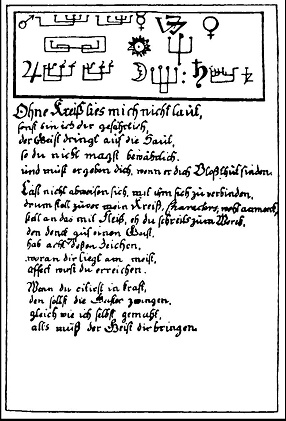 Ohne Kreiß lies mich nicht laut,
sonst bin ich dir gefährlich,
der Geist dringt auf die Haut,
so du nicht magst bewährlich.
und muß er geben dich, wenn er dich
Laß nicht abweisen sich, mit ihm sich zu verbinden,
drum stell zuvor mein Kreiß, Characters, wohl
stell an das mit Fleiß, eh du schreibst zum Werck,
den denck auf einen Geist,
hab acht Zeichen,
woran dir liegt am meist,
wirst du erreichen.
Wann du citierst in Krafft,
den sollst die Geister zwingen,
gleich wie ich selbst gemuht,
alls muß der Geist dir bringen.